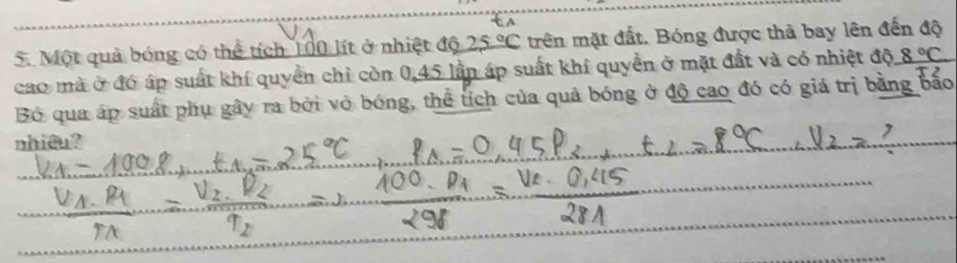 V1 t1
5. Một quả bóng có thể tích 100 lít ở nhiệt độ 25 °C trên mặt đất. Bóng được thả bay lên đến độ
cao mà ở đó áp suất khí quyển chỉ còn 0,45 lần áp suất khí quyển ở mặt đất và có nhiệt độ 8 °C.
P T2
Bỏ qua áp suất phụ gây ra bởi vỏ bóng, thể tích của quả bóng ở độ cao đó có giá trị bằng bao
nhiêu?
V1 = 100l, t1 = 25°C, P1 = 0,45P2, t2 = 8°C, V2 = ?
V1.P1/T1 = V2.P2/T2 => 100.P1/298 = V2.0,45/281